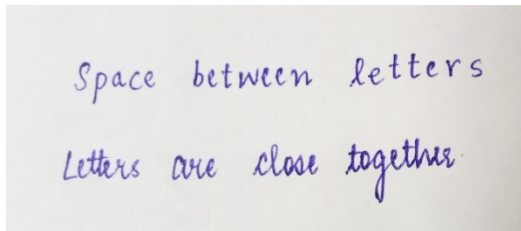 Space between letters
Letters are close together.